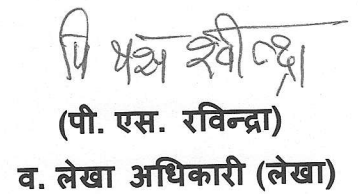 पि एस रवीन्द्रा
(पी. एस. रविन्द्रा)
व. लेखा अधिकारी (लेखा)